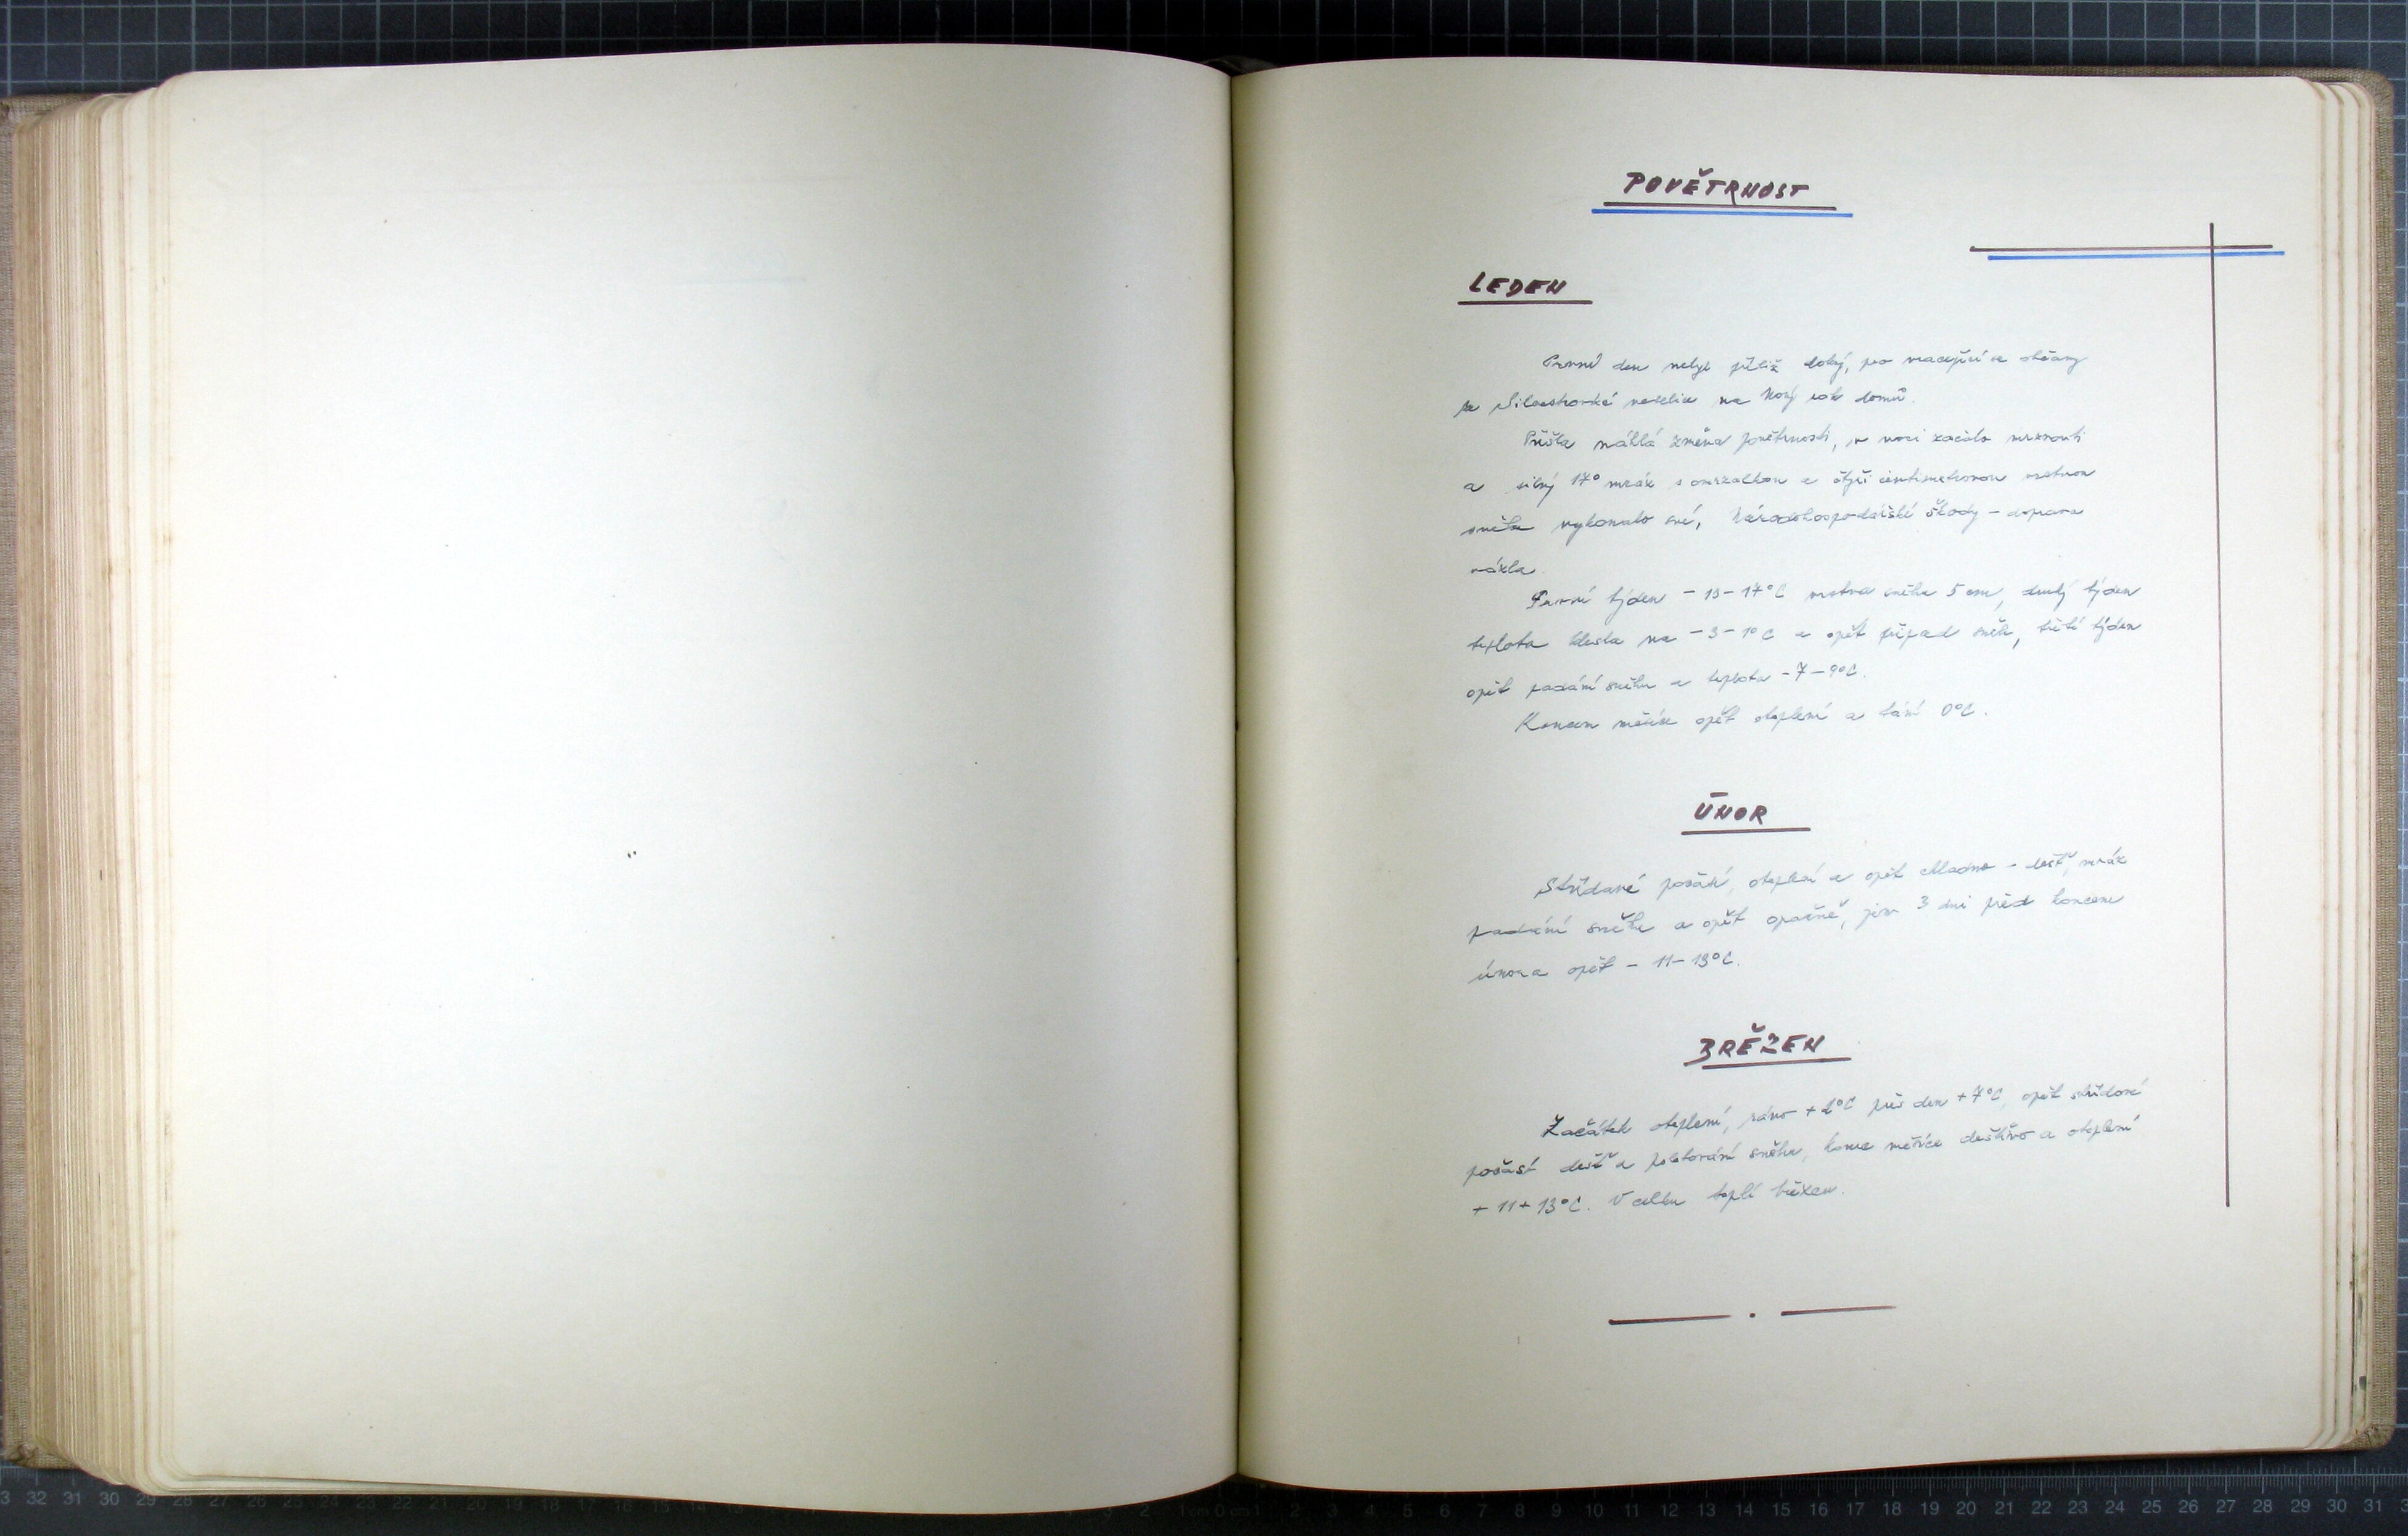 POVĚTRNOST
LEDEN
První den nebyl příliš dobrý, pro vracející se občany
ze Silvestrovské veselice na Nový rok domů.
Přišla náhlá změna povětrnosti, v noci začalo mrznouti
a silný 17° mráz s omrzalkou a čtyři centimetrovou vrstvou
sněhu vykonalo své, Národohospodářské škody - doprava
vázla
První týden - 15 - 17°C vrstva sněhu 5 cm, druhý týden
teplota klesla na - 3 - 1°C a opět připad sníh, třetí týden
opět padání sněhu a teplota - 7 - 9°C.
Koncem měsíce opět oteplení a tání 0°C.
ÚNOR
Střídavé počásí, oteplení a opět chladno - dešť, mráz
padání sněhu a opět opačně, jen 3 dni před koncem
února opět - 11 - 13°C.
BŘEZEN
Začátek oteplení, ráno + 2°C přes den + 7°C, opět střídavé
počásí dešť a poletování sněhu, konec měsíce deštivo a oteplení
+ 11 + 13°C. V celku teplí březen.
32 31 30 29 28 27 26 25 24 23 22 21 20 19 18 17 16 15 2 1 cm 0 cm 1 2 3 4 5 6 7 8 9 10 11 12 13 14 15 16 17 18 19 20 21 22 23 24 25 26 27 28 29 30 31